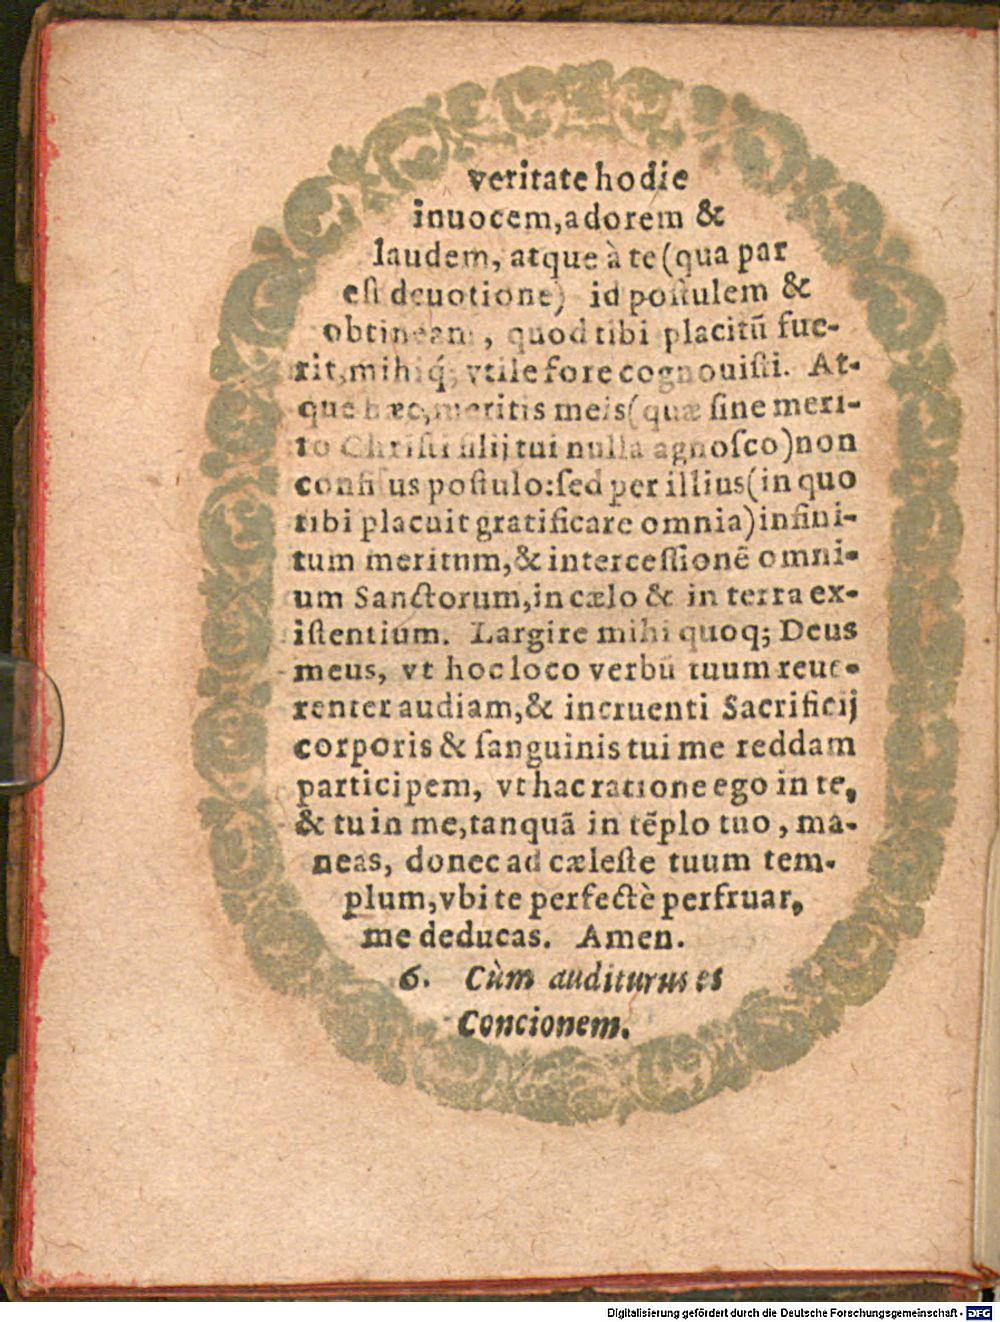 veritate hodie
inuocem, adorem &
laudem, atque à te (qua par
est deuotione) id postulem &
obtineam, quod tibi placitũ fue-
rit, mihiq́; vtile fore cognouisti. At-
que hæc, meritis meis (quæ sine meri-
to Christi filij tui nulla agnosco) non
confisus postulo: sed per illius (in quo
tibi placuit gratificare omnia) infini-
tum meritum, & intercessionẽ omni-
um Sanctorum, in cælo & in terra ex-
istentium. Largire mihi quoq; Deus
meus, vt hoc loco verbũ tuum reue-
renter audiam, & incruenti Sacrificij
corporis & sanguinis tui me reddam
participem, vt hac ratione ego in te,
& tu in me, tanquã in tẽplo tuo, ma-
neas, donec ad cæleste tuum tem-
plum, vbi te perfectè perfruar,
me deducas. Amen.
6. Cùm auditurus es
Concionem.
Digitalisierung gefördert durch die Deutsche Forschungsgemeinschaft - DFG